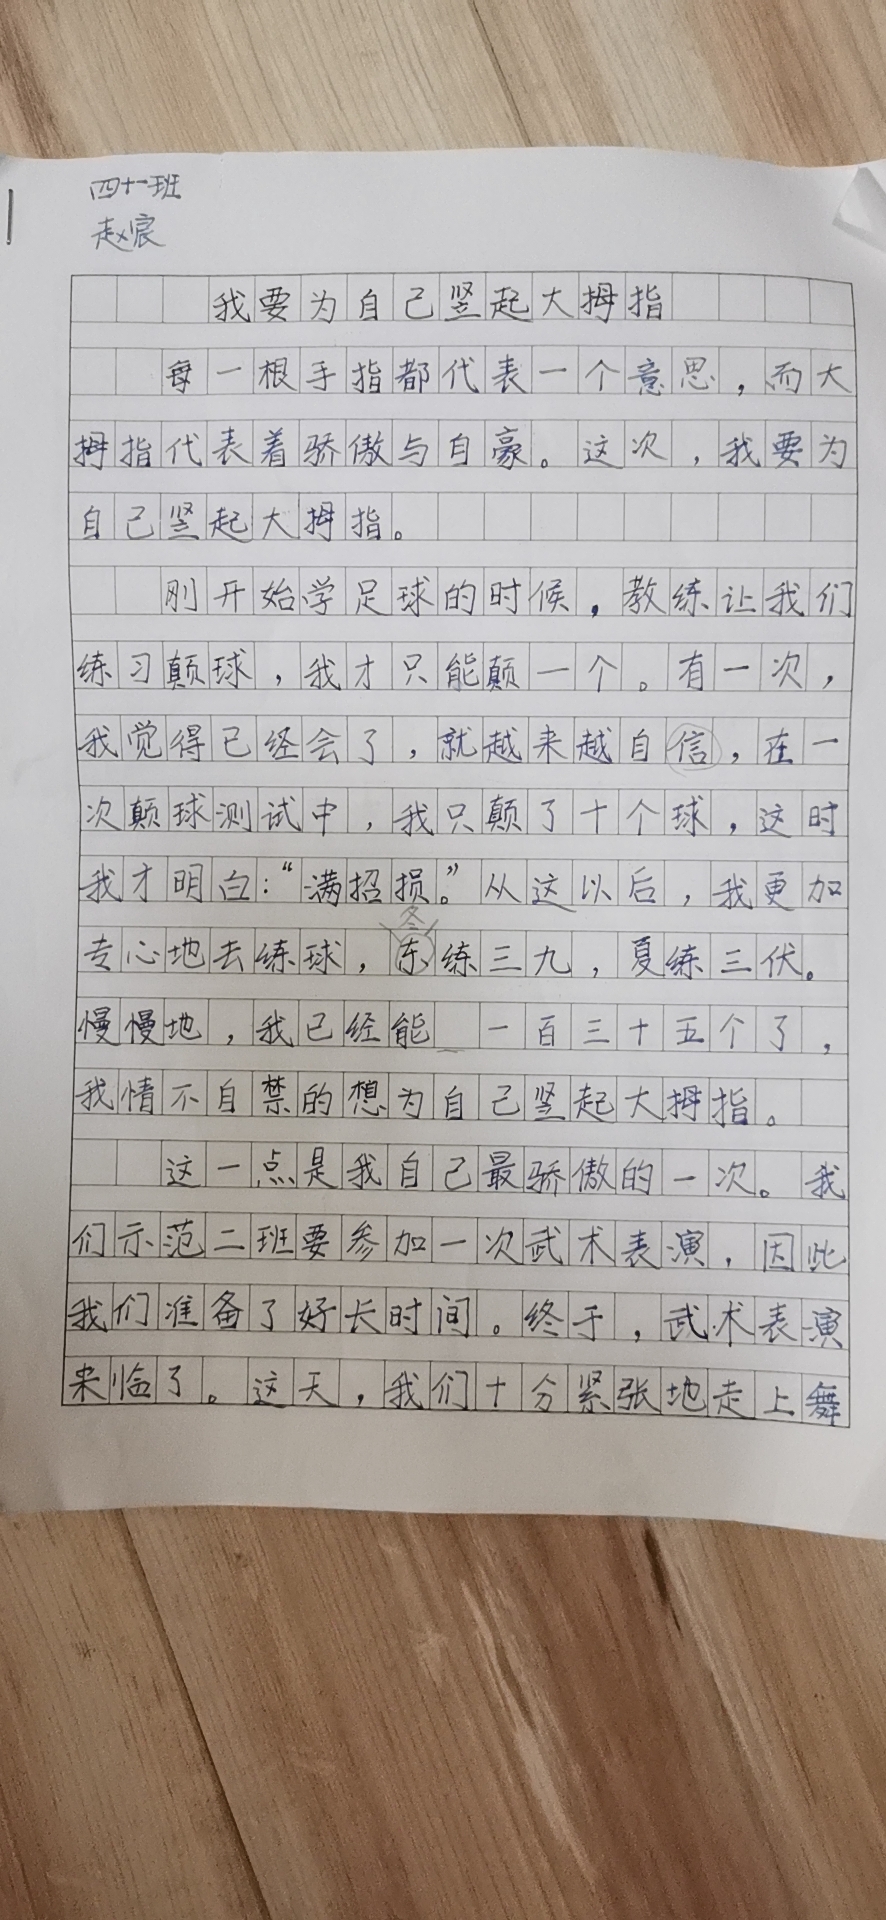 四十一班
赵宸
我要为自己竖起大拇指
每一根手指都代表一个意思，而大
拇指代表着骄傲与自豪。这次，我要为
自己竖起大拇指。
刚开始学足球的时候，教练让我们
练习颠球，我才只能颠一个。有一次，
我觉得已经会了，就越来越自信，在一
次颠球测试中，我只颠了十个球，这时
我才明白：“满招损。”从这以后，我更加
冬
专心地去练球，东练三九，夏练三伏。
慢慢地，我已经能 一百三十五个了，
我情不自禁的想为自己竖起大拇指。
这一点是我自己最骄傲的一次。我
们示范二班要参加一次武术表演，因此
我们准备了好长时间。终于，武术表演
来临了。这天，我们十分紧张地走上舞